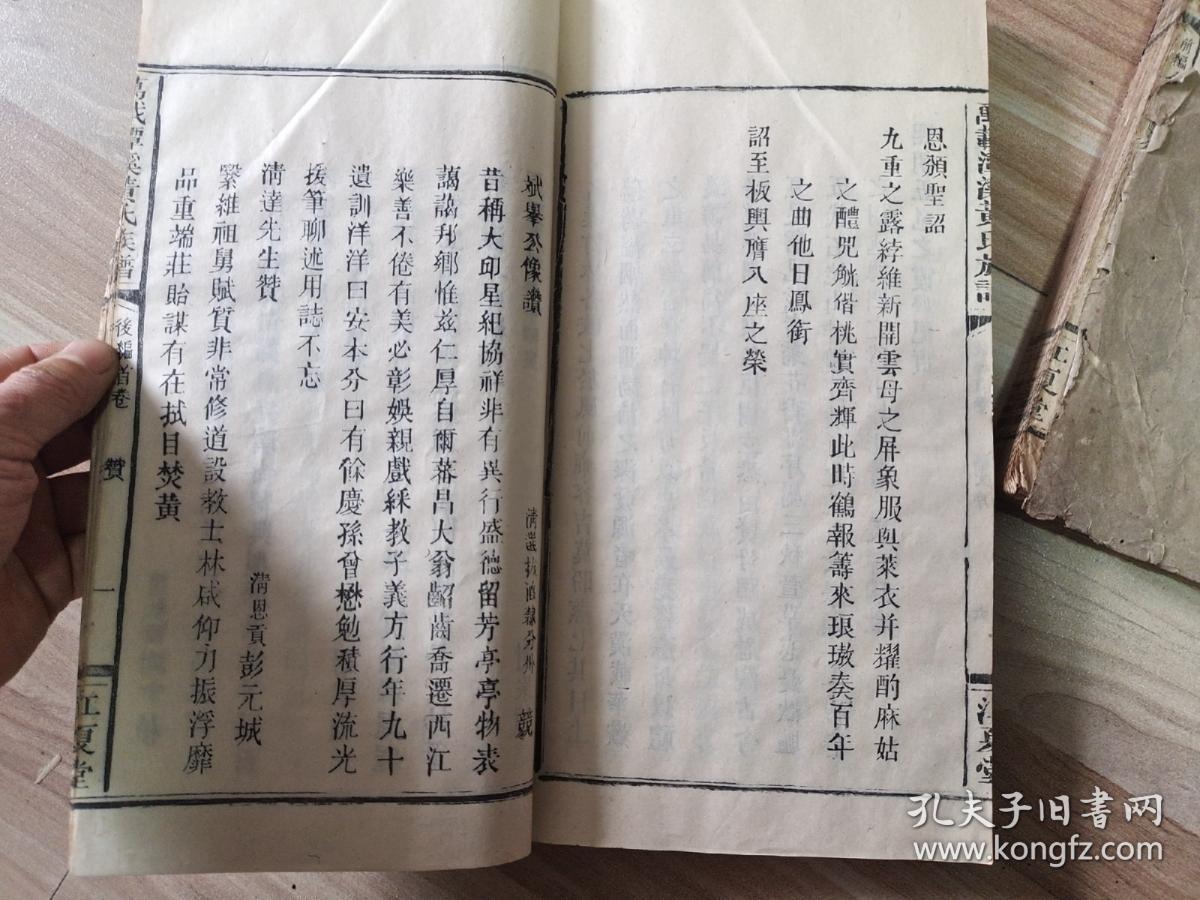 恩頒聖詔
九重之露綍維新開雲母之屏象服與萊衣并耀酌麻姑
之醴兕觥偕桃實齊輝此時鶴報籌來琅璈奏百年
之曲他日鳳銜
詔至板輿膺入座之榮
江夏堂
公像讚
昔稱大卬星紀協祥非有異行盛德留芳亭亭物表
藹藹邦鄉惟玆仁厚自爾蕃昌大翁齠齒喬遷西江
樂善不倦有美必彰娛親戲綵教子義方行年九十
遺訓洋洋曰安本分曰有餘慶孫曾懋勉積厚流光
援筆聊述用誌不忘
清達先生贊
清恩貢彭元城
繄維祖舅賦質非常修道設教士林咸仰力振浮靡
品重端莊貽謀有在拭目焚黃
後編首卷
贊
一
江夏堂
江夏堂
孔夫子旧书网
www.kongfz.com